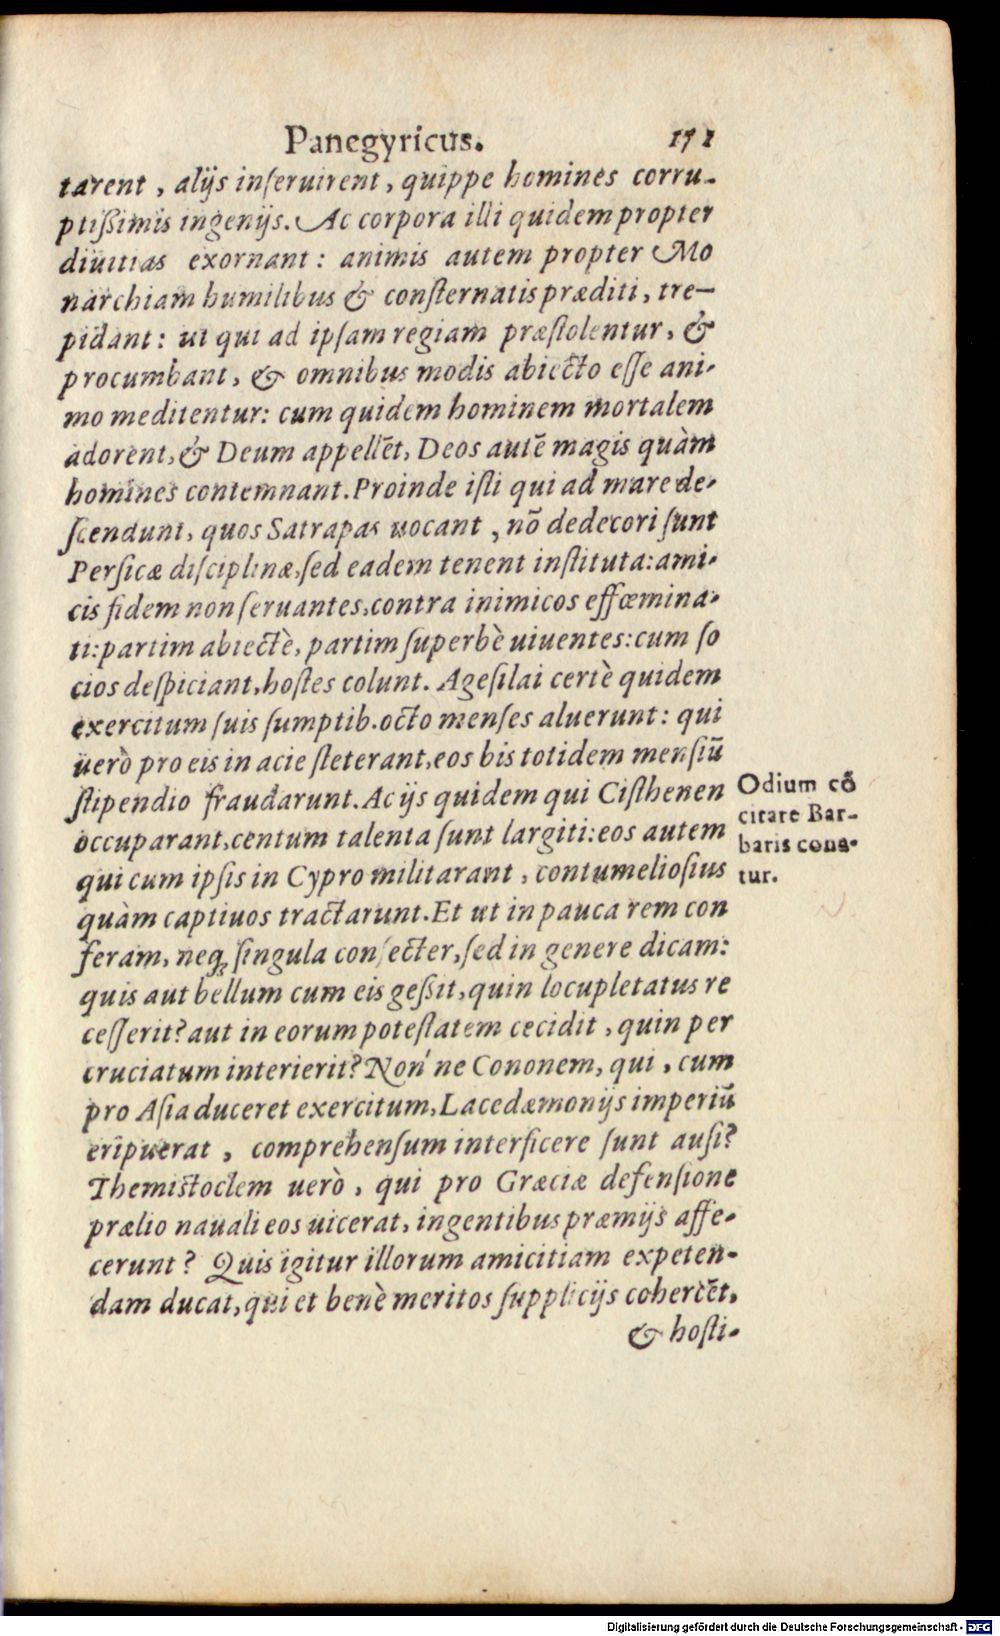 Panegyricus. 171
tarent, alijs inſeruirent, quippe homines corru-
ptißimis ingenijs. Ac corpora illi quidem propter
diuitias exornant: animis autem propter Mo
narchiam humilibus & conſternatis præditi, tre-
pidant: ut qui ad ipſam regiam præſtolentur, &
procumbant, & omnibus modis abiecto eſſe ani-
mo meditentur: cum quidem hominem mortalem
adorent, & Deum appellēt, Deos autē magis quàm
homines contemnant. Proinde iſti qui ad mare de-
ſcendunt, quos Satrapas uocant, nō dedecori ſunt
Perſicæ diſciplinæ, ſed eadem tenent inſtituta: ami-
cis fidem non ſeruantes, contra inimicos effœmina-
ti: partim abiectè, partim ſuperbè uiuentes: cum ſo
cios deſpiciant, hoſtes colunt. Ageſilai certè quidem
exercitum ſuis ſumptib. octo menſes aluerunt: qui
uerò pro eis in acie ſteterant, eos bis totidem menſiū
ſtipendio fraudarunt. Ac ijs quidem qui Ciſthenen
occuparant, centum talenta ſunt largiti: eos autem
qui cum ipſis in Cypro militarant, contumelioſius
quàm captiuos tractarunt. Et ut in pauca rem con
feram, neq; ſingula conſecter, ſed in genere dicam:
quis aut bellum cum eis geßit, quin locupletatus re
ceſſerit? aut in eorum poteſtatem cecidit, quin per
cruciatum interierit? Non' ne Cononem, qui, cum
pro Aſia duceret exercitum, Lacedæmonijs imperiū
eripuerat, comprehenſum interficere ſunt auſi?
Themistoclem uerò, qui pro Græciæ defenſione
prælio nauali eos uicerat, ingentibus præmijs affe-
cerunt? Quis igitur illorum amicitiam expeten-
dam ducat, qui et benè meritos ſupplicijs coherceēt,
& hoſti-
Odium cō
citare Bar-
baris cona-
tur.
Digitalisierung gefördert durch die Deutsche Forschungsgemeinschaft - DFG